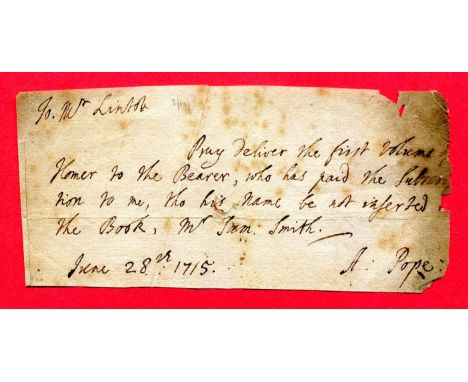 To. Mr Lintot
Pray deliver the first Volume
Homer to the Bearer, who has paid the Subscri
tion to me, tho his Name be not inserted
the Book, Mr Smith.
June 28th 1715.
A: Pope.